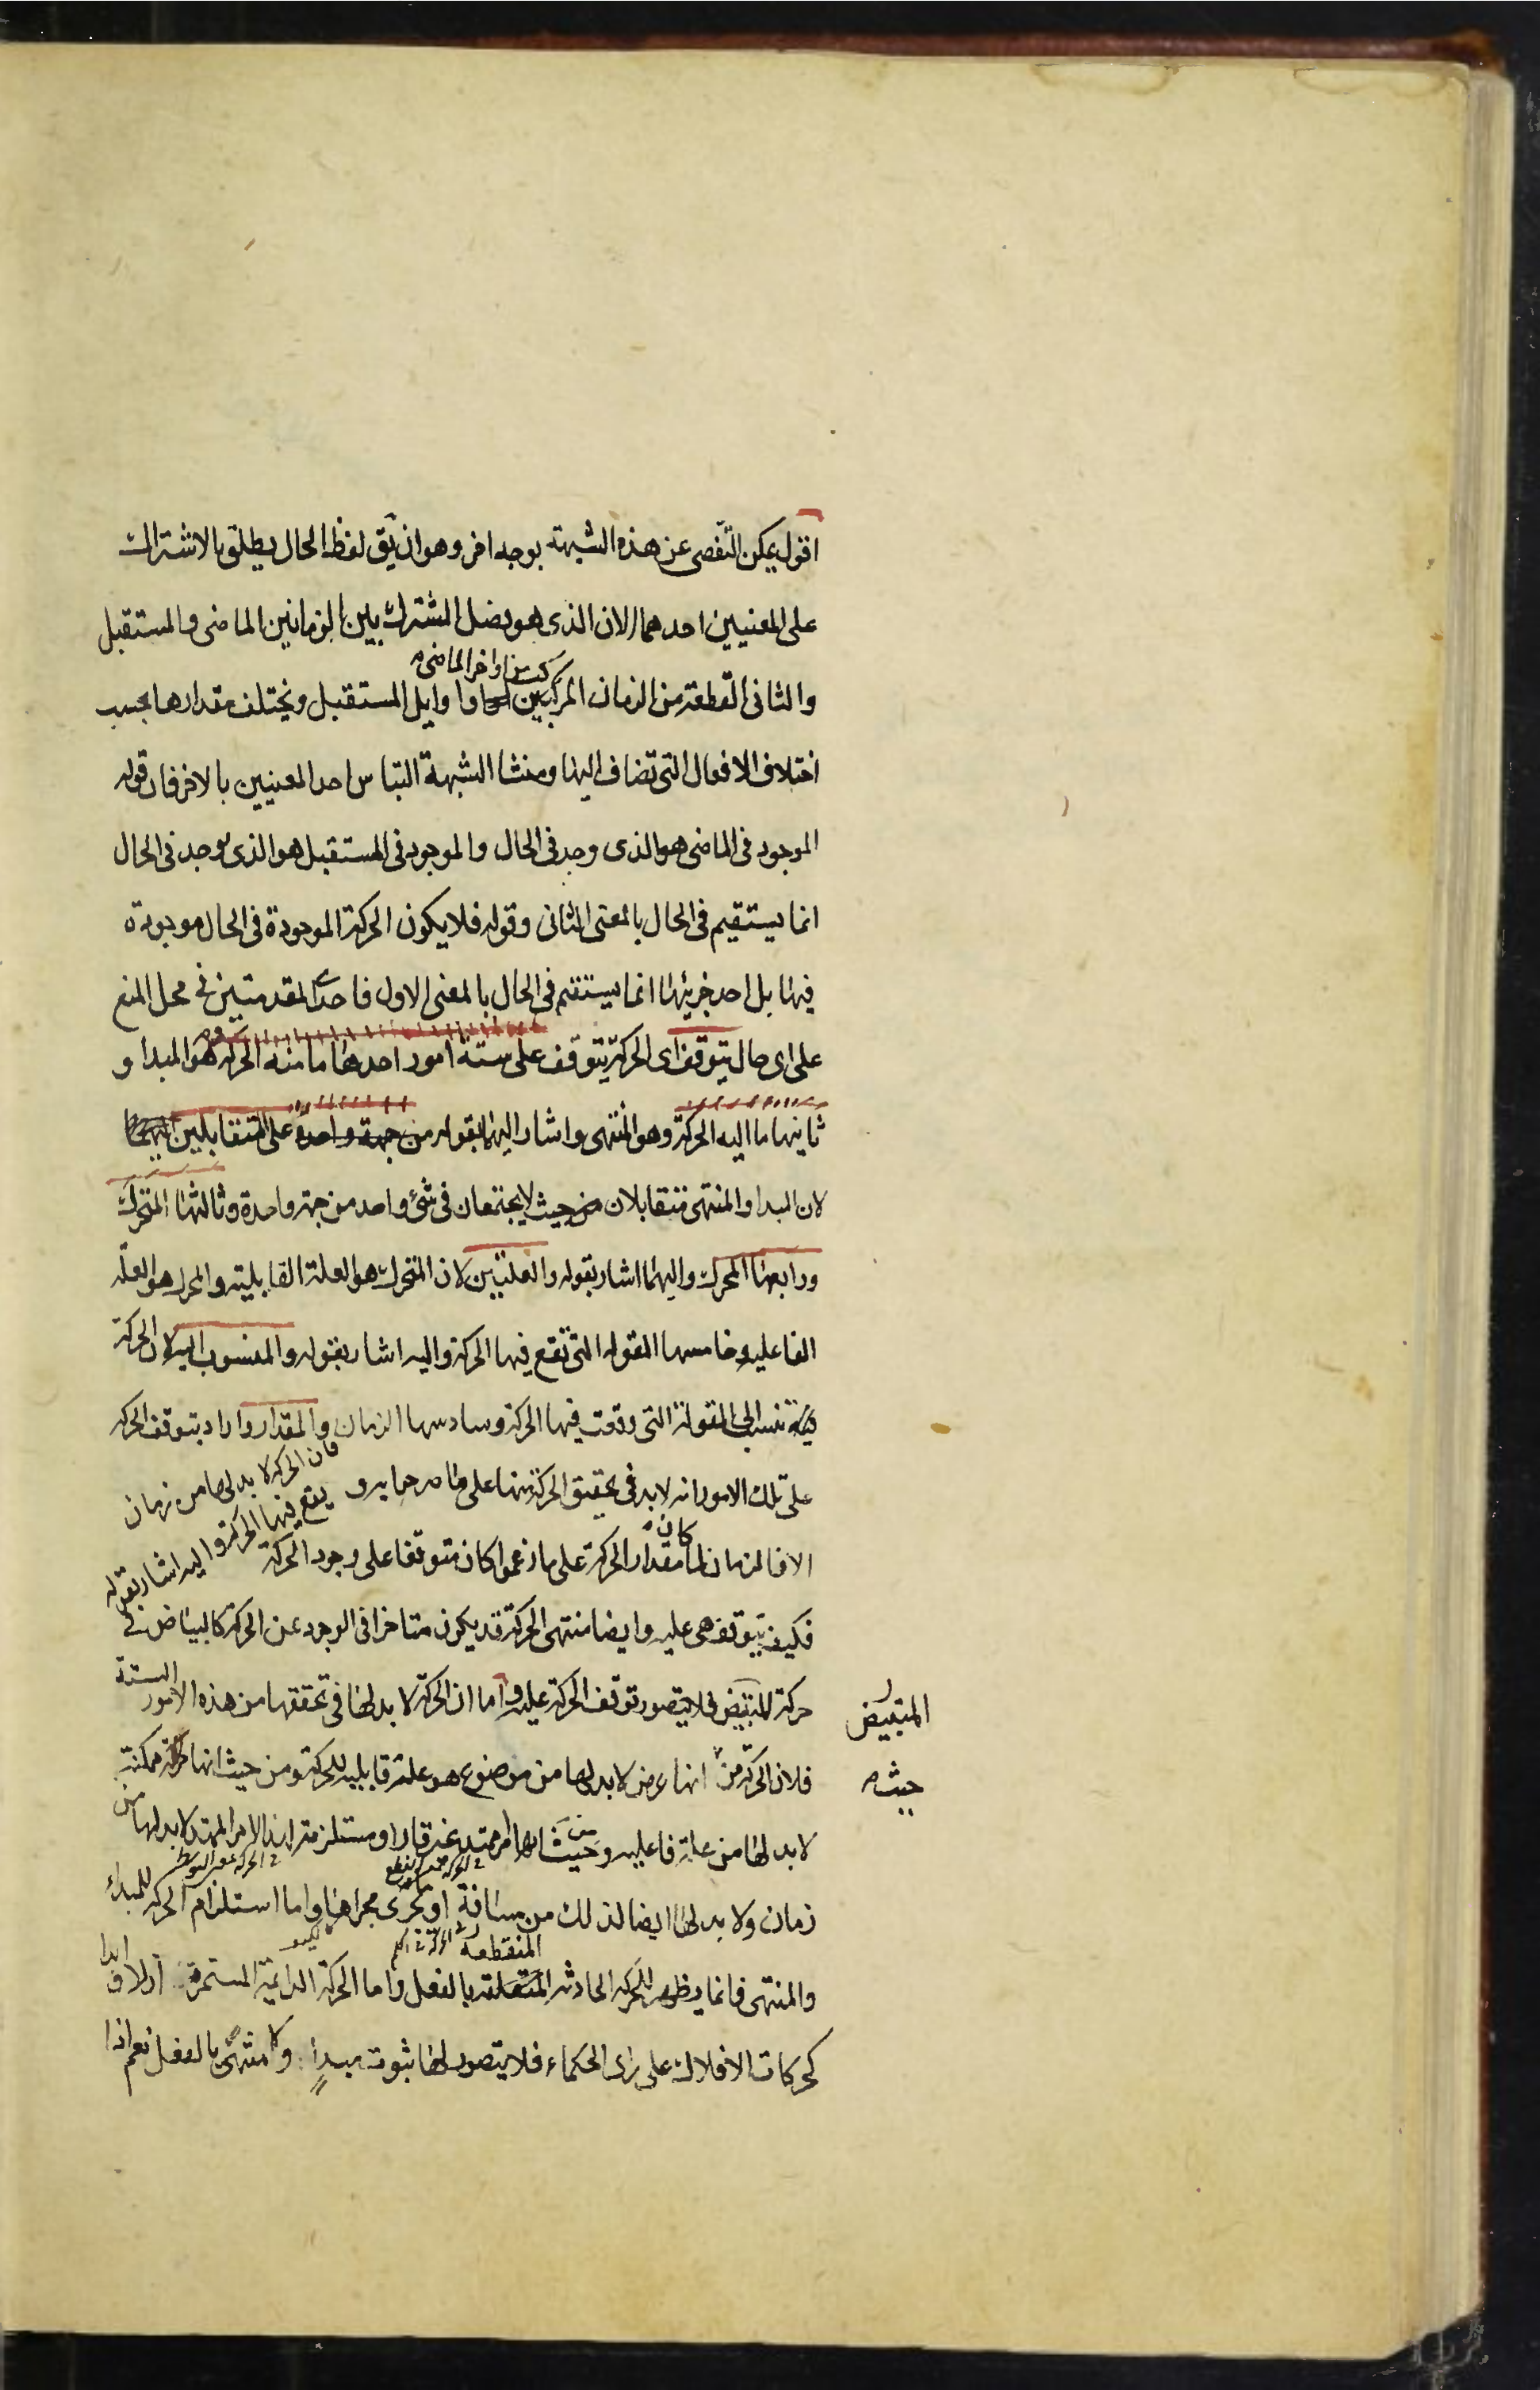 اقول يمكن التفصى عن هذه الشبهة بوجه اخر وهو ان يق لفظ الحال يطلق بالاشتراك
على المعنيين احدهما الان الذى هو فصل المشترك بين الزمانين الماضى والمستقبل
من اواخر الماضى
والثانى القطعة من الزمان المركب واوايل المستقبل ويختلف مقدارها بحسب
اختلاف الافعال التى تضاف اليها ومنشا الشبهة التباس احد المعنيين بالاخر فان قوله
الموجود فى الماضى هو الذى وجد فى الحال والموجود فى المستقبل هو الذى يوجد فى الحال
انما يستقيم فى الحال بالمعنى الثانى وقوله فلا يكون الحركة الموجودة فى الحال موجودة
فيها بل احد جزئيها انما يستقيم فى الحال بالمعنى الاول فاحد المقدمتين فى محل المنع
على اى حال يتوقف اى الحركة يتوقف على ستة امور احدها ما منه الحركة هو المبدا و
ثانيها ما اليه الحركة وهو المنتهى واشار اليهما بقوله من جهة واحدة على المتقابلين
لان المبدا والمنتهى متقابلان من حيث لا يجتمعان فى شئ واحد من جهة واحدة وثالثها المتحرك
ورابعها المحرك واليهما اشار بقوله والعلتين لان المتحرك هو العلة القابلية والمحرك هو العلة
الفاعلية وخامسها المقولة التى تقع فيها الحركة واليه اشار بقوله والمنسوب اليه لان الحركة
تنسب الى المقولة التى وقعت فيها الحركة وسادسها الزمان والمقدار واراد بتوقف الحركة
فان الحركة لا بد لها من زمان
يقع فيها الحركة واليه اشار بقوله
على تلك الامور انه لا بد فى تحقيق الحركة منها على ما
كان
الا فالزمان لما مقدار الحركة على ما زعموا كان متوقفا على وجود الحركة
فكيف يتوقف هى عليه وايضا منتهى الحركة قد يكون متاخرا فى الوجود عن الحركة كالبياض فى
الستة
حركة المتبيض فلا يتصور توقف الحركة عليه واما ان الحركة لا بد لها فى تحققها من هذه الامور
المتبيض
فلان الحركة من انها عرض لا بد لها من موضوع هو علة قابلية للحركة ومن حيث انها ممكنة
حيث
لا بد لها من علة فاعلية و من حيث انها امر ممتد غير قار او مستلزمة لهذا الامر الممتد لا بد لها من
زمان ولا بد لها ايضا لذلك من مسافة او ما يجرى مجراها واما استلزام الحركة للمبداء
المنقطعة
والمنتهى فانما يظهر للحركة الحادثة بالفعل واما الحركة الدائمة المستمرة ازلا و ابدا
كحركات الافلاك على راى الحكماء فلا يتصور لها ثبوت مبدإ ولا منتهى بالفعل نعم اذا